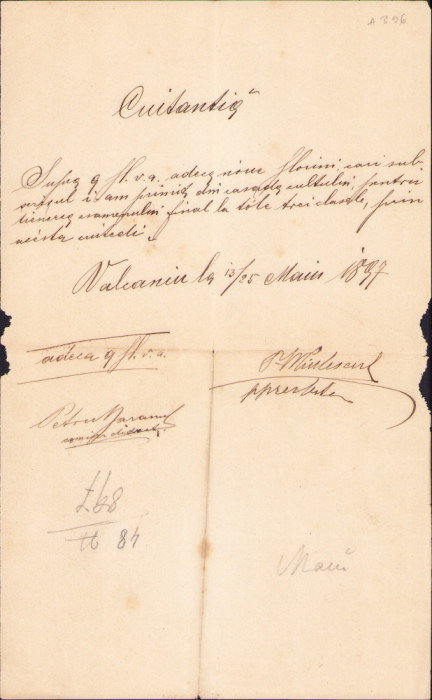 4396
Cuitantiă
Supra 9 fl. v. a. adecă nóue florini cari sub-
scrisul i-am primit din cassa cultului, pentru
tienerea esamenului final la tóte trei clasele, prin
acésta cuitedi
Valcaniu la 13/25 Maiu 1897
adeca 9 fl. v. a.
P.
Petru
48
84
Maiu